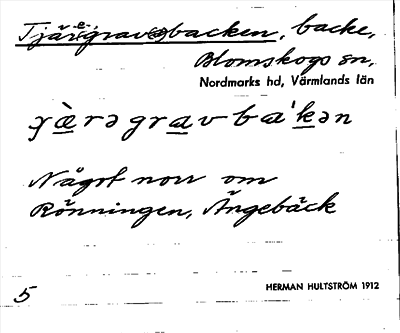 Tjäregravsbacken, backe,
Blomskogs sn,
Nordmarks hd, Värmlands län
Något norr om
Rönningen, Ängebäck
5
HERMAN HULTSTRÖM 1912